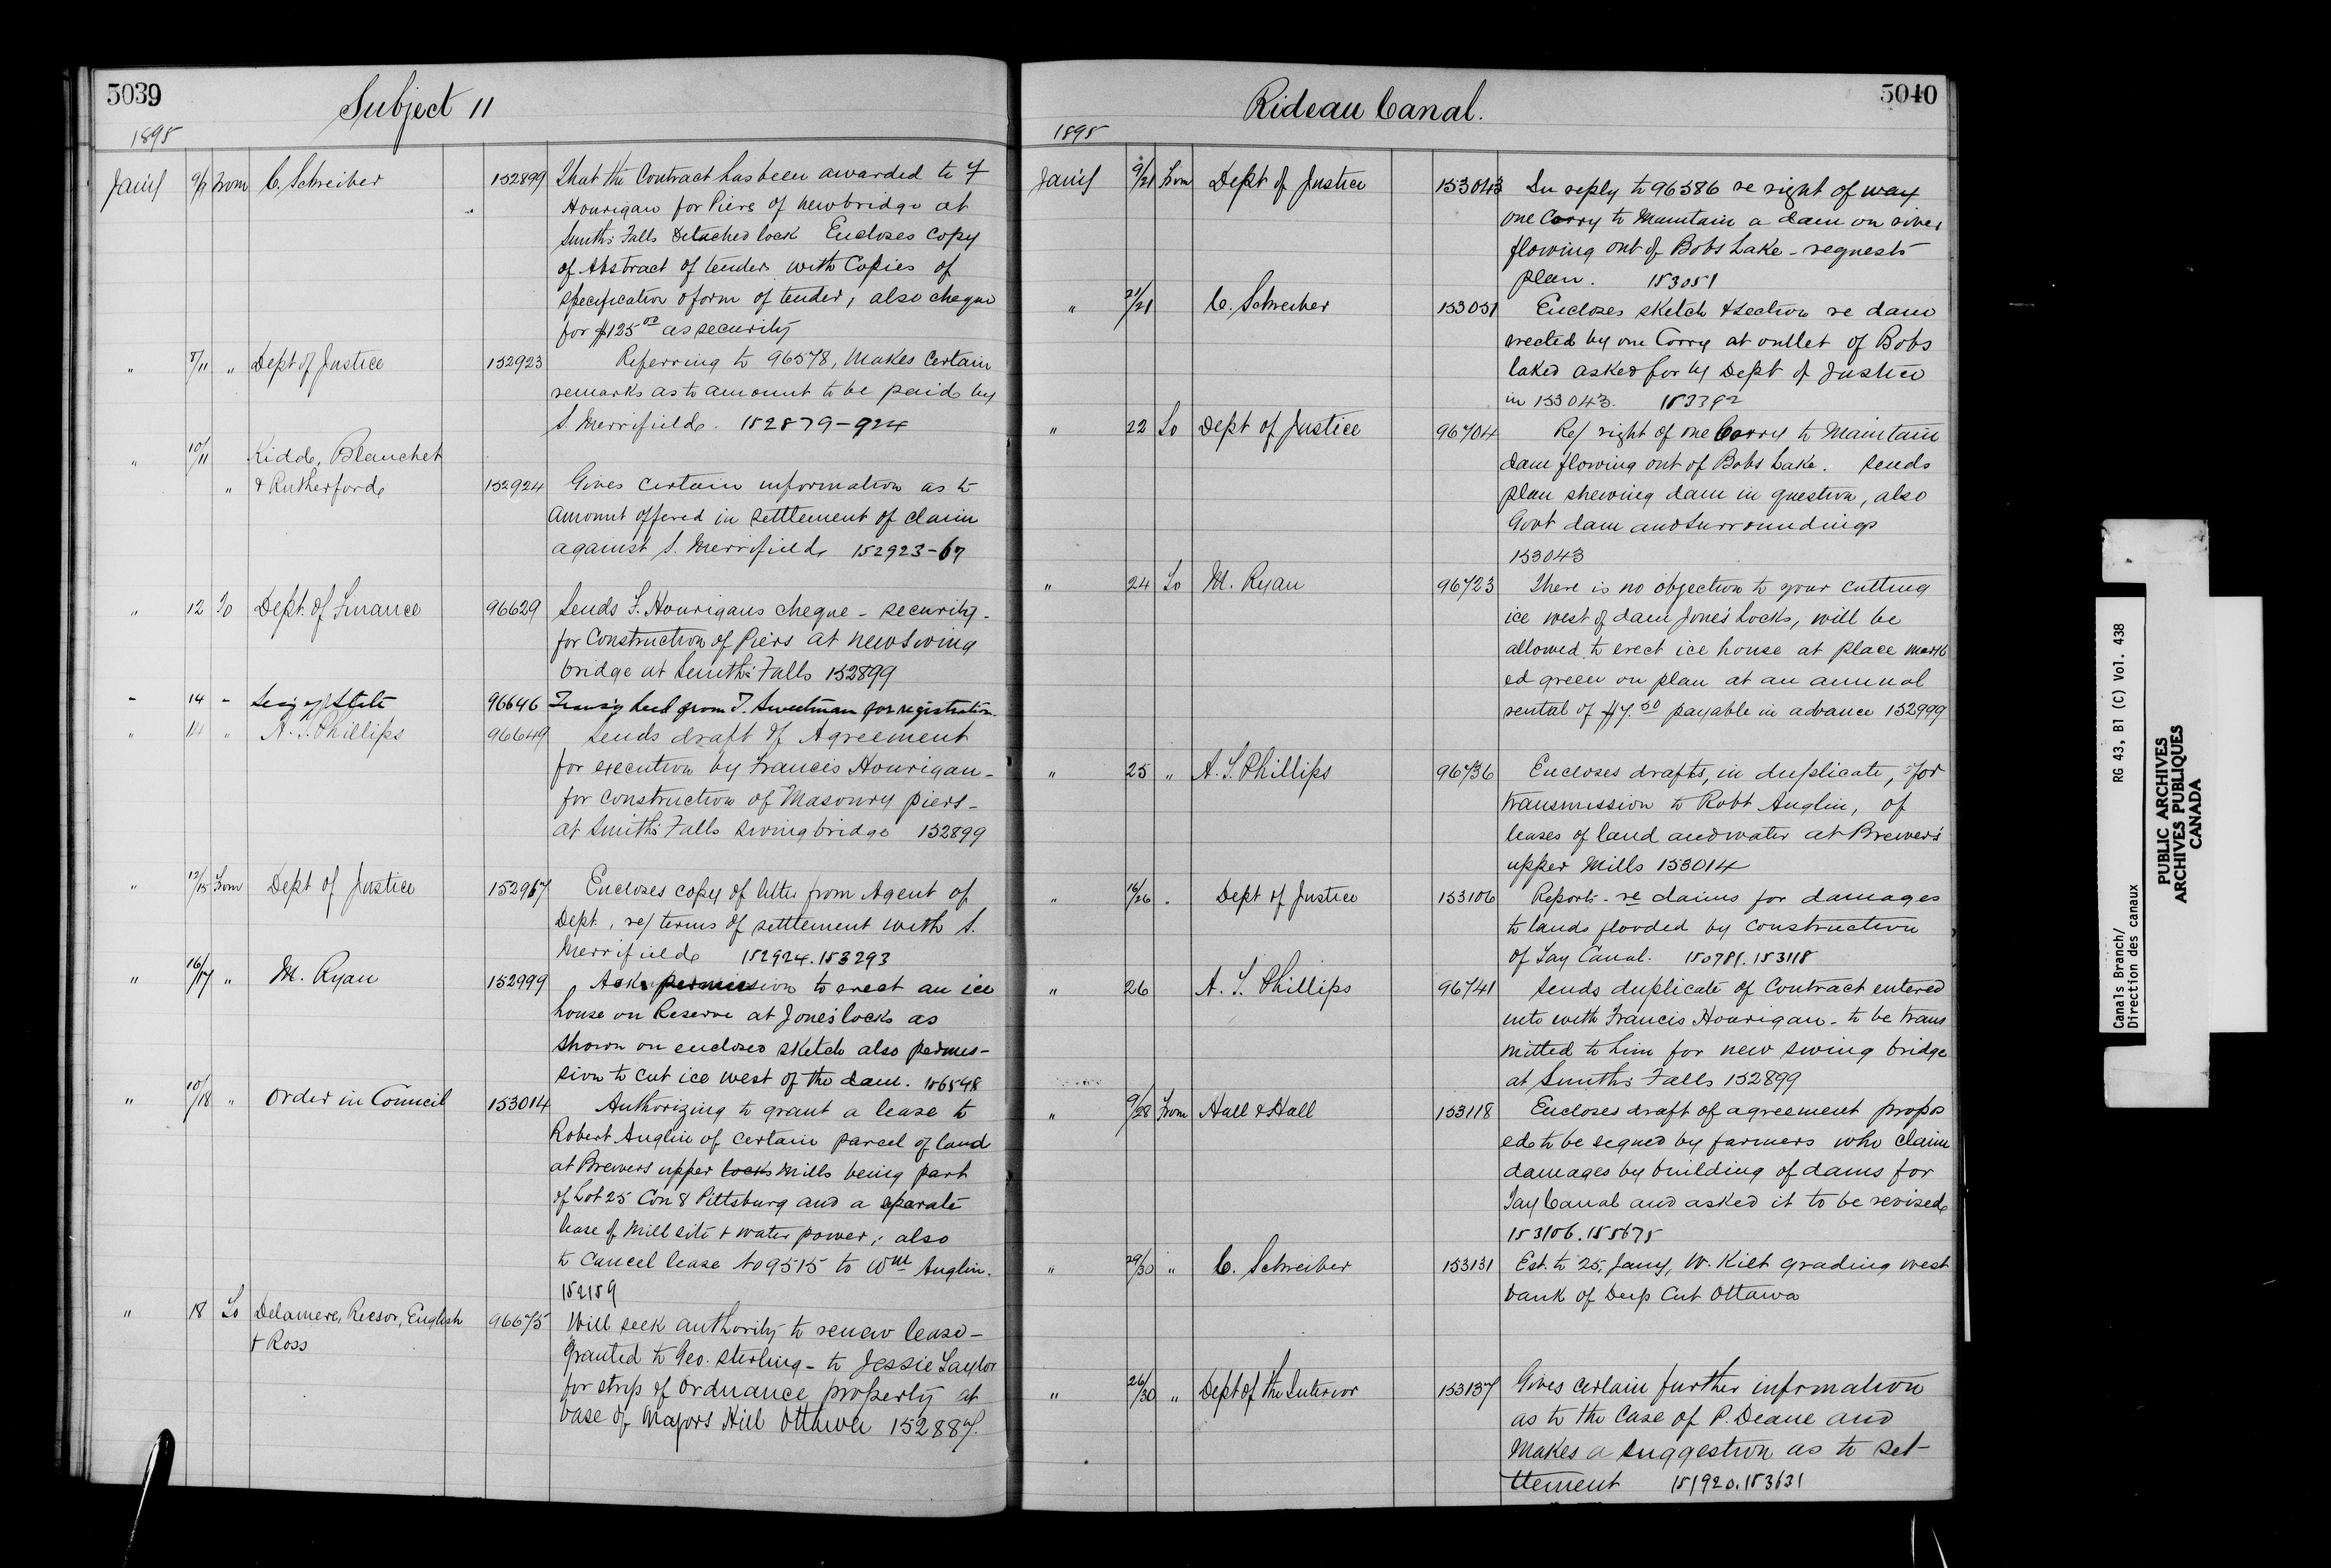 5039
Subject 11
1895
Jany 9/9 From C. Schreiber 152899 That the Contract has been awarded to F
Hourigan for Piers of new bridge at
Smith's Falls Detached lock Encloses Copy
of Abstract of tenders with Copies of
specification & form of tender, also cheque
for $125 00 as security
" 8/11 " Dept of Justice 152923 Referring to 96578, Makes Certain
remarks as to amount to be paid by
S. Merrifield. 152879-924
" 10/11 Kidd, Blanchet
" & Rutherford 152924 Gives certain information as to
amount offered in settlement of claim
against S. Merrifield 152923-67
" 12 To Dept. of Finance 96629 Sends F. Hourigans cheque - security -
for Construction of Piers at new Swing
bridge at Smith's Falls 152899
" 14 " Secy of State 96646 Deed from T. Sweetman for registration
" 14 " A. T. Phillips 96649 Sends draft of Agreement
for execution by Francis Hourigan -
for Construction of Masonry piers -
at Smith's Falls Swing bridge 152899
" 12/15 From Dept of Justice 152967 Encloses copy of letter from Agent of
Dept., re/ terms of settlement with S.
Merrifield 152924.153293
" 16/17 " M. Ryan 152999 Asks permission to erect an ice
house on Reserve at Jones' locks as
shown on enclosed sketch also permis-
sion to cut ice west of the dam. 156548
" 10/18 " Order in Council 153014 Authorizing to grant a lease to
Robert Anglin of certain parcel of land
at Brewers upper locks Mills being part
of Lot 25 Con 8 Pittsburg and a separate
lease of Mill site & water power; also
to Cancel lease No 9515 to Wm Anglin.
152159
" 18 To Delamere, Reesor, English 96675 Will seek authority to renew lease -
& Ross granted to Geo. Sterling - to Jessie Taylor
for strip of Ordnance property at
base of Majors Hill Ottawa 152887.
5040
Rideau Canal.
1895
Jany 9/21 From Dept of Justice 153043 In reply to 96586 re right of way
one Corry to Maintain a dam on river
flowing out of Bobs Lake - requests
plan. 153051
" 21/21 C. Schreiber 153051 Encloses sketch & section re dam
erected by one Corry at outlet of Bobs
lake asked for by Dept of Justice
in 153043. 153392
" 22 To Dept of Justice 96704 Re/ right of one Corry to Maintain
dam flowing out of Bobs Lake. Sends
plan shewing dam in question, also
Govt dam and Surroundings
153043
" 24 To M. Ryan 96723 There is no objection to your cutting
ice west of dam Jones' Locks, will be
allowed to erect ice house at place mark
ed green on plan at an annual
rental of $7.50 payable in advance 152999
" 25 " A. T. Phillips 96736 Encloses drafts, in duplicate, for
transmission to Robt Anglin, of
leases of land and water at Brewer's
upper Mills 153014
" 16/26 . Dept of Justice 153106 Reports - re claims for damages
to lands flooded by Construction
of Tay Canal. 150781.153118
" 26 A. T. Phillips 96741 Sends duplicate of Contract entered
into with Francis Hourigan - to be trans
mitted to him for new swing bridge
at Smith's Falls 152899
" 9/28 From Hall & Hall 153118 Encloses draft of agreement propos
ed to be signed by farmers who claim
damages by building of dams for
Tay Canal and asked it to be revised
153106.155675
" 29/30 " C. Schreiber 153131 Est. to 25, Jany, W. Kilt grading west
bank of Deep Cut Ottawa
" 26/30 " Dept of the Interior 153137 Gives certain further infrmation
as to the Case of P. Deane and
Makes a suggestion as to set-
tlement 151920.153631
Canals Branch/ RG 43, B1 (C) Vol. 438
Direction des canaux
PUBLIC ARCHIVES
ARCHIVES PUBLIQUES
CANADA